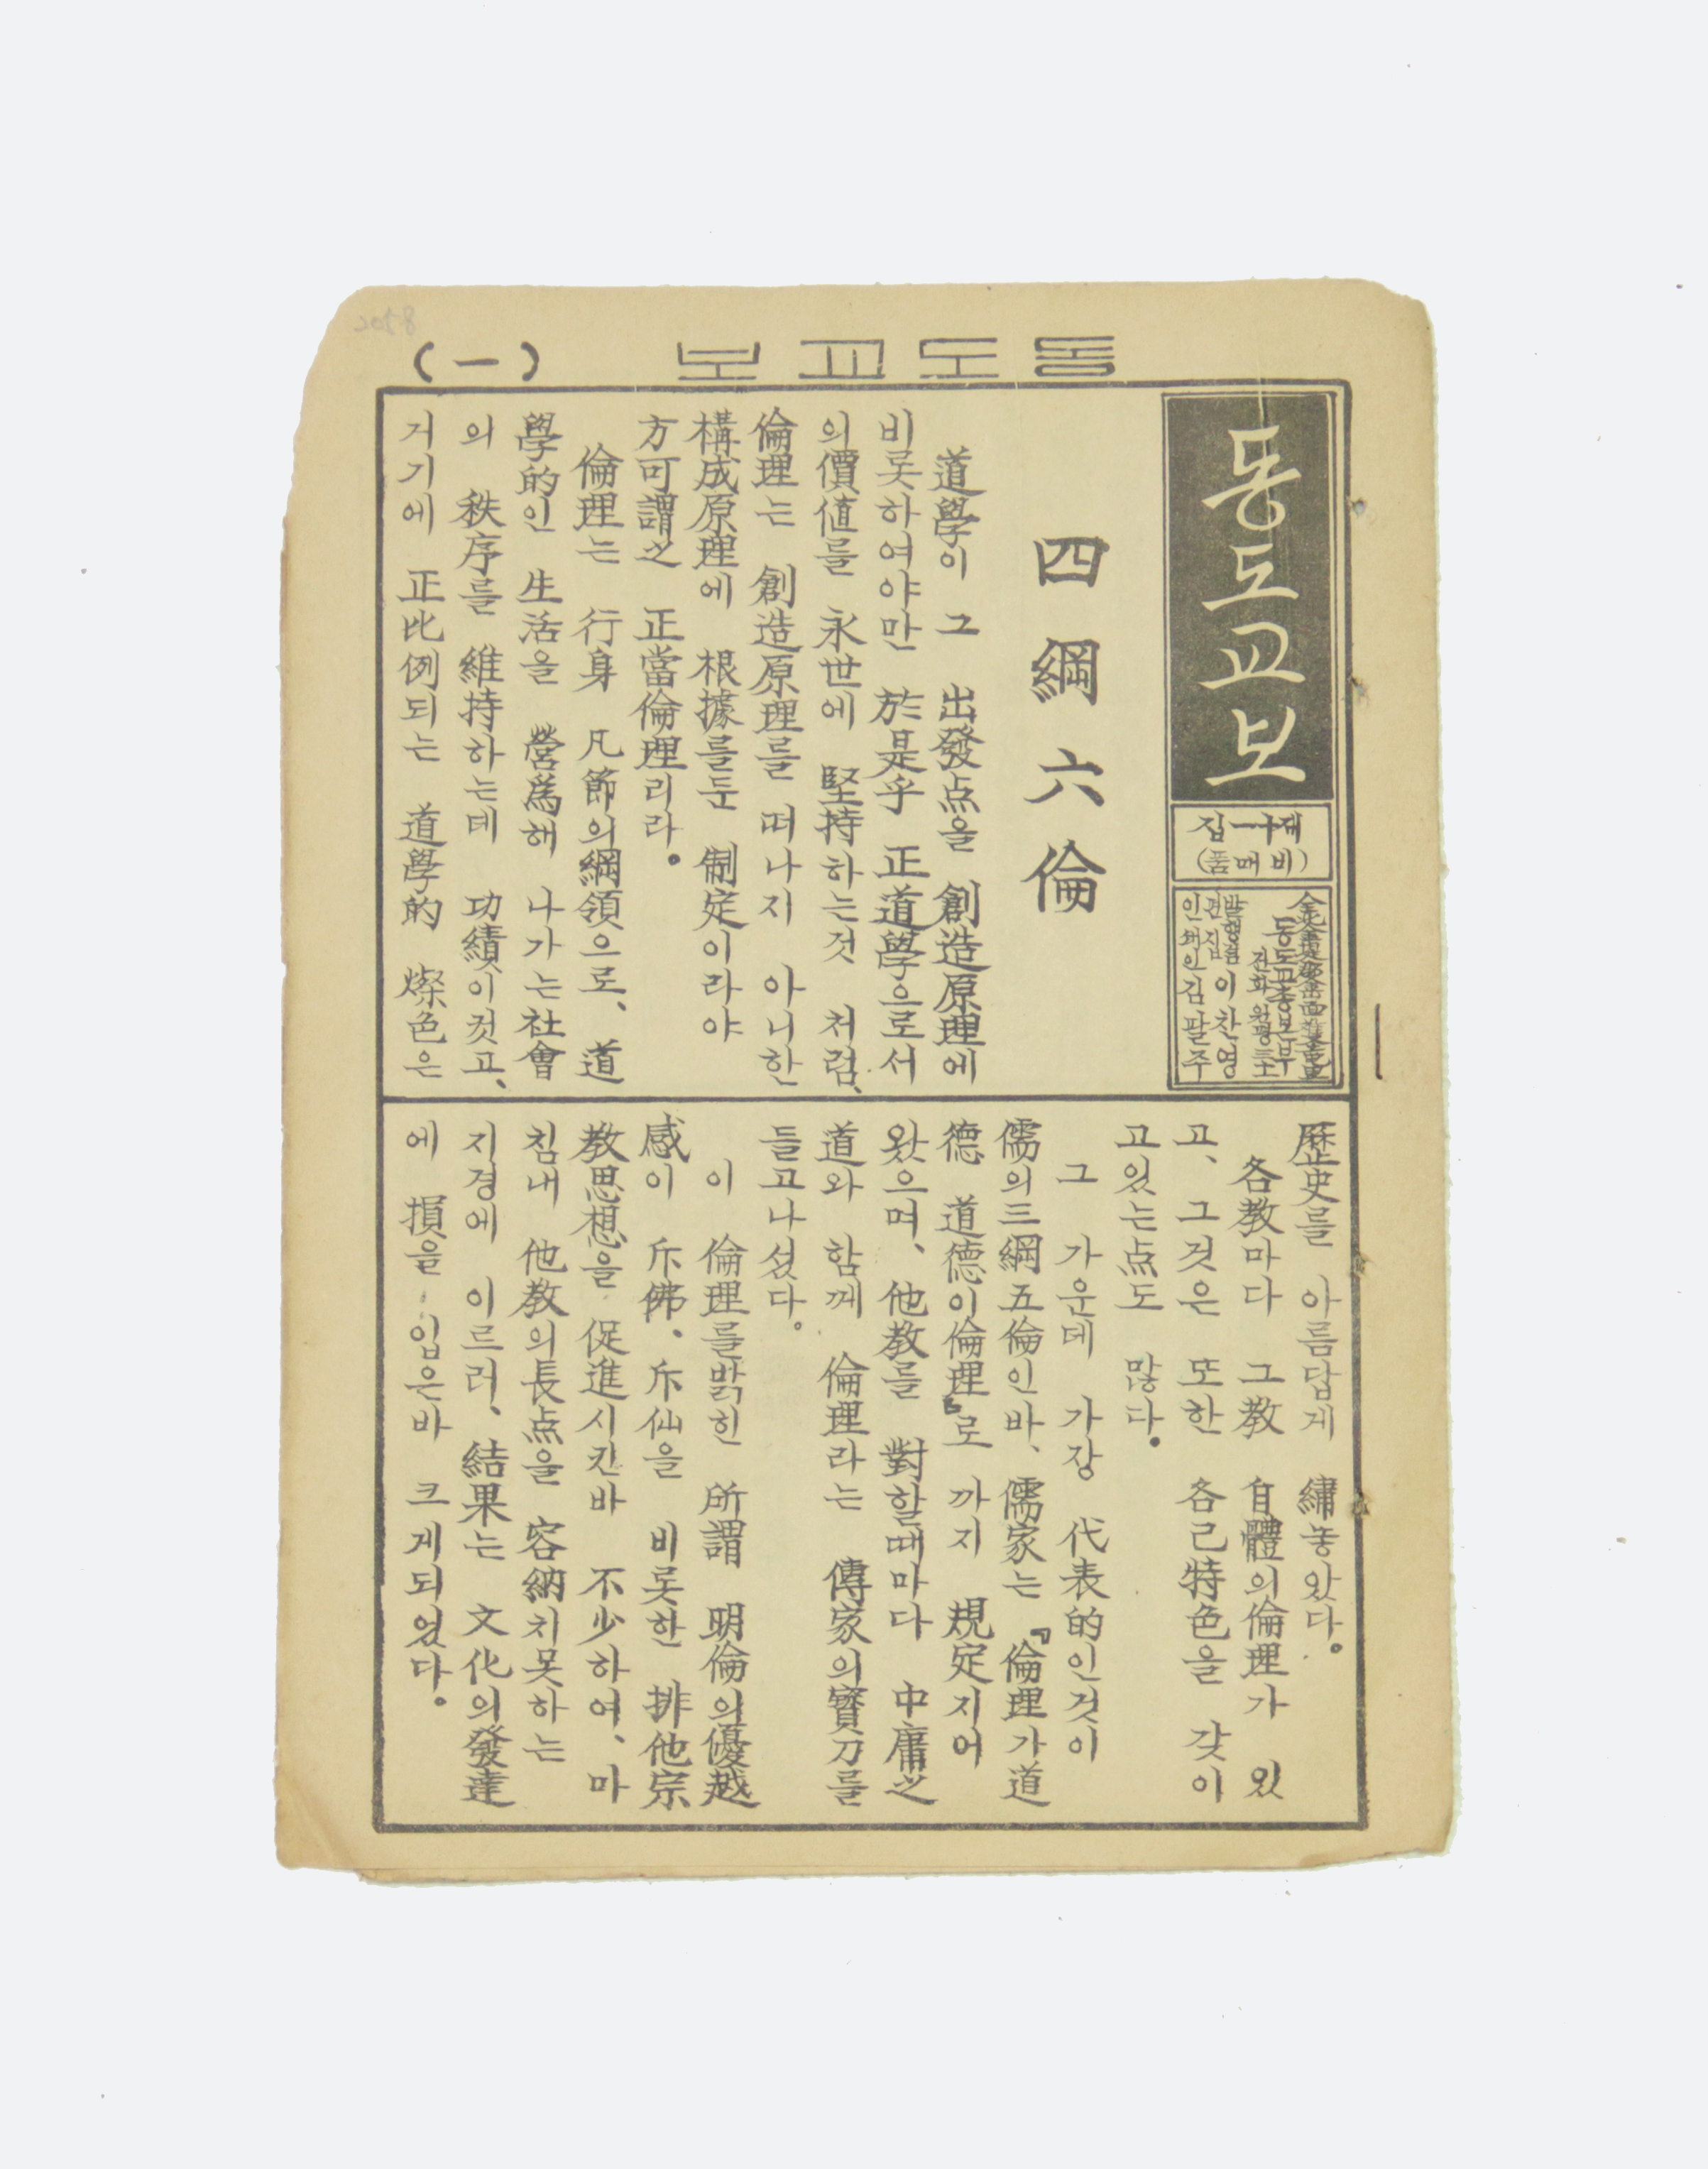 2058
동도교보
(一)
동도교보
제十一집
(비매품)
동도교총본부
발행겸
편집 이찬영
인쇄인 김팔주
四綱六倫
道學이 그 出發点을 創造原理에
비롯하여야만 於是乎 正道學으로서
의價値를 永世에 堅持하는것 처럼、
倫理는 創造原理를 떠나지 아니한
構成原理에 根據를둔 制定이라야
方可謂之 正當倫理리라。
倫理는 行身 凡節의綱領으로、道
學的인 生活을 營爲해 나가는社會
의 秩序를 維持하는데 功績이컷고、
거기에 正比例되는 道學的 燦色은
歷史를 아름답게 繡놓았다。
各教마다 그教 自體의倫理가 있
고、그것은 또한 各己特色을 갖이
고있는点도 많다。
그 가운데 가장 代表的인것이
儒의三綱五倫인바、儒家는『倫理가道
德 道德이倫理』로 까지 規定지어
왔으며、他教를 對할때마다 中庸之
道와 함께 倫理라는 傳家의寶刀를
들고나섰다。
이 倫理를밝힌 所謂 明倫의優越
感이 斥佛、斥仙을 비롯한 排他宗
教思想을 促進시킨바 不少하여、마
침내 他教의長点을 容納치못하는
지경에 이르러、結果는 文化의發達
에 損을 입은바 크게되었다。